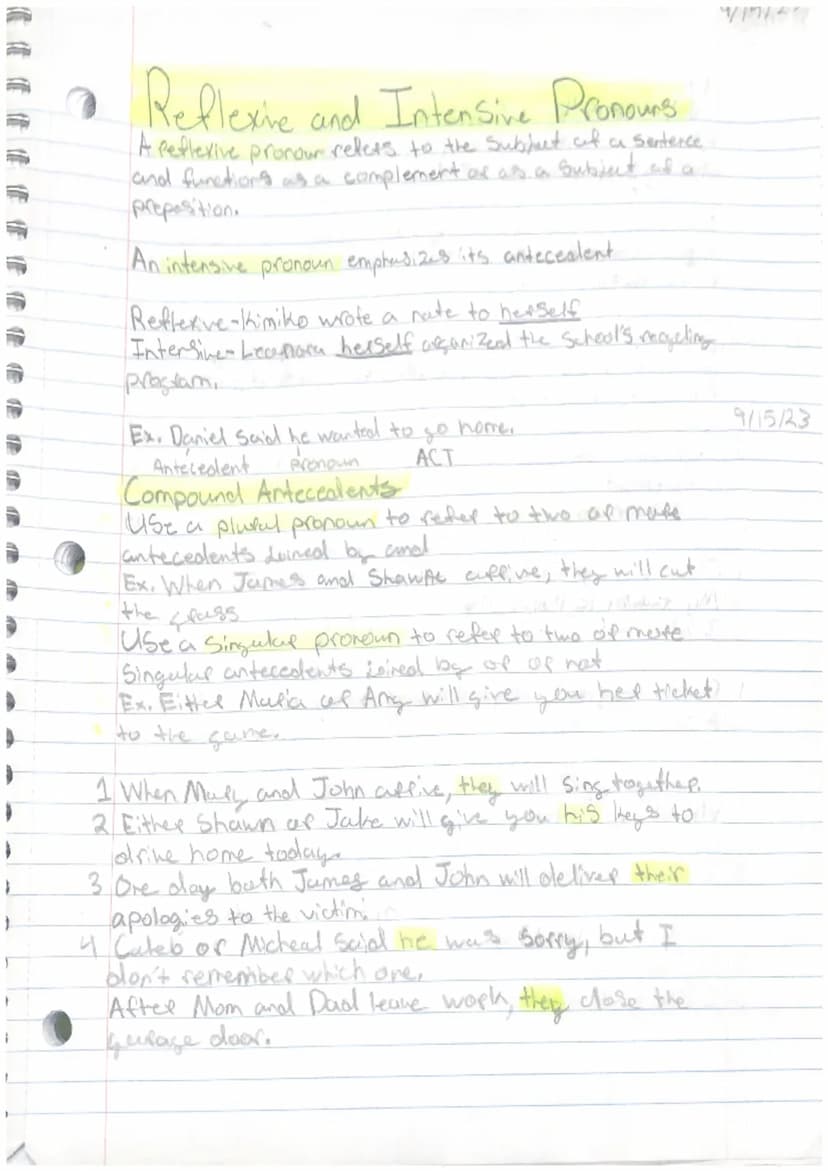 Reflexive and Intensive Pronouns
A reflexive pronoun refers to the subject of a sentence
and functions as a complement or as a subject of a
preposition.
An intensive pronoun emphasizes its antecedent
Reflexive-Kimiko wrote a note to herself
Intensive- Leonora herself organized the school's recycling
program.
9/15/23
Ex. Daniel said he wanted to go home.
Antecedent pronoun ACT
Compound Antecedents
Use a plural pronoun to refer to two or more
antecedents joined by and
Ex. When James and Shawn arrive, they will cut
the grass
Use a singular pronoun to refer to two or more
singular antecedents joined by or or not
Ex. Either Maria or Amy will give you her ticket
to the game.
1 When Mary and John arrive, they will sing together.
2 Either Shawn or Jake will give you his keys to
drive home today.
3 One day both James and John will deliver their
apologies to the victim.
4 Caleb or Micheal said he was sorry, but I
don't remember which one.
After Mom and Dad leave work, they close the
garage door.